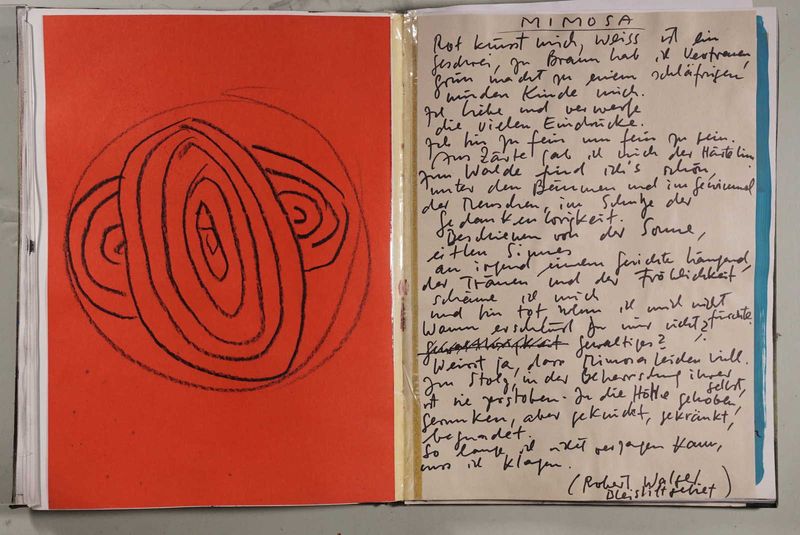 MIMOSA
Rot küsst mich, Weiss ist ein
Geschrei, zu Braun hab ich Vertrauen,
Grün macht zu einem schläfrigen
müden Kinde mich.
Ich liebe und verwerfe
die vielen Eindrücke.
Ich bin zu fein um fein zu sein.
Aus Zärte gab ich mich der Härte hin
Im Walde find ich's schön,
unter den Bäumen und im Gewimmel
der Menschen, im Schutze der
Gedankenlosigkeit.
Beschienen von der Sonne,
eitlen Sinnes
an irgend einem Gesichte hängend
der Tränen und der Fröhlichkeit,
schäme ich mich
und bin tot wenn ich mich nicht
fürchte.
Wann erscheinst Du mir nicht
Gewaltiges?
Weisst ja, dass Mimosa leiden will.
Im Stolz, in der Beherrschung ihrer
selbst,
ist sie gestoben. In die Höhe gehoben,
Gesunken, aber gekränkt,
begnadet.
So lange ich nicht versagen kann,
muss ich klagen.
(Robert Walser
Bleistiftgebiet)